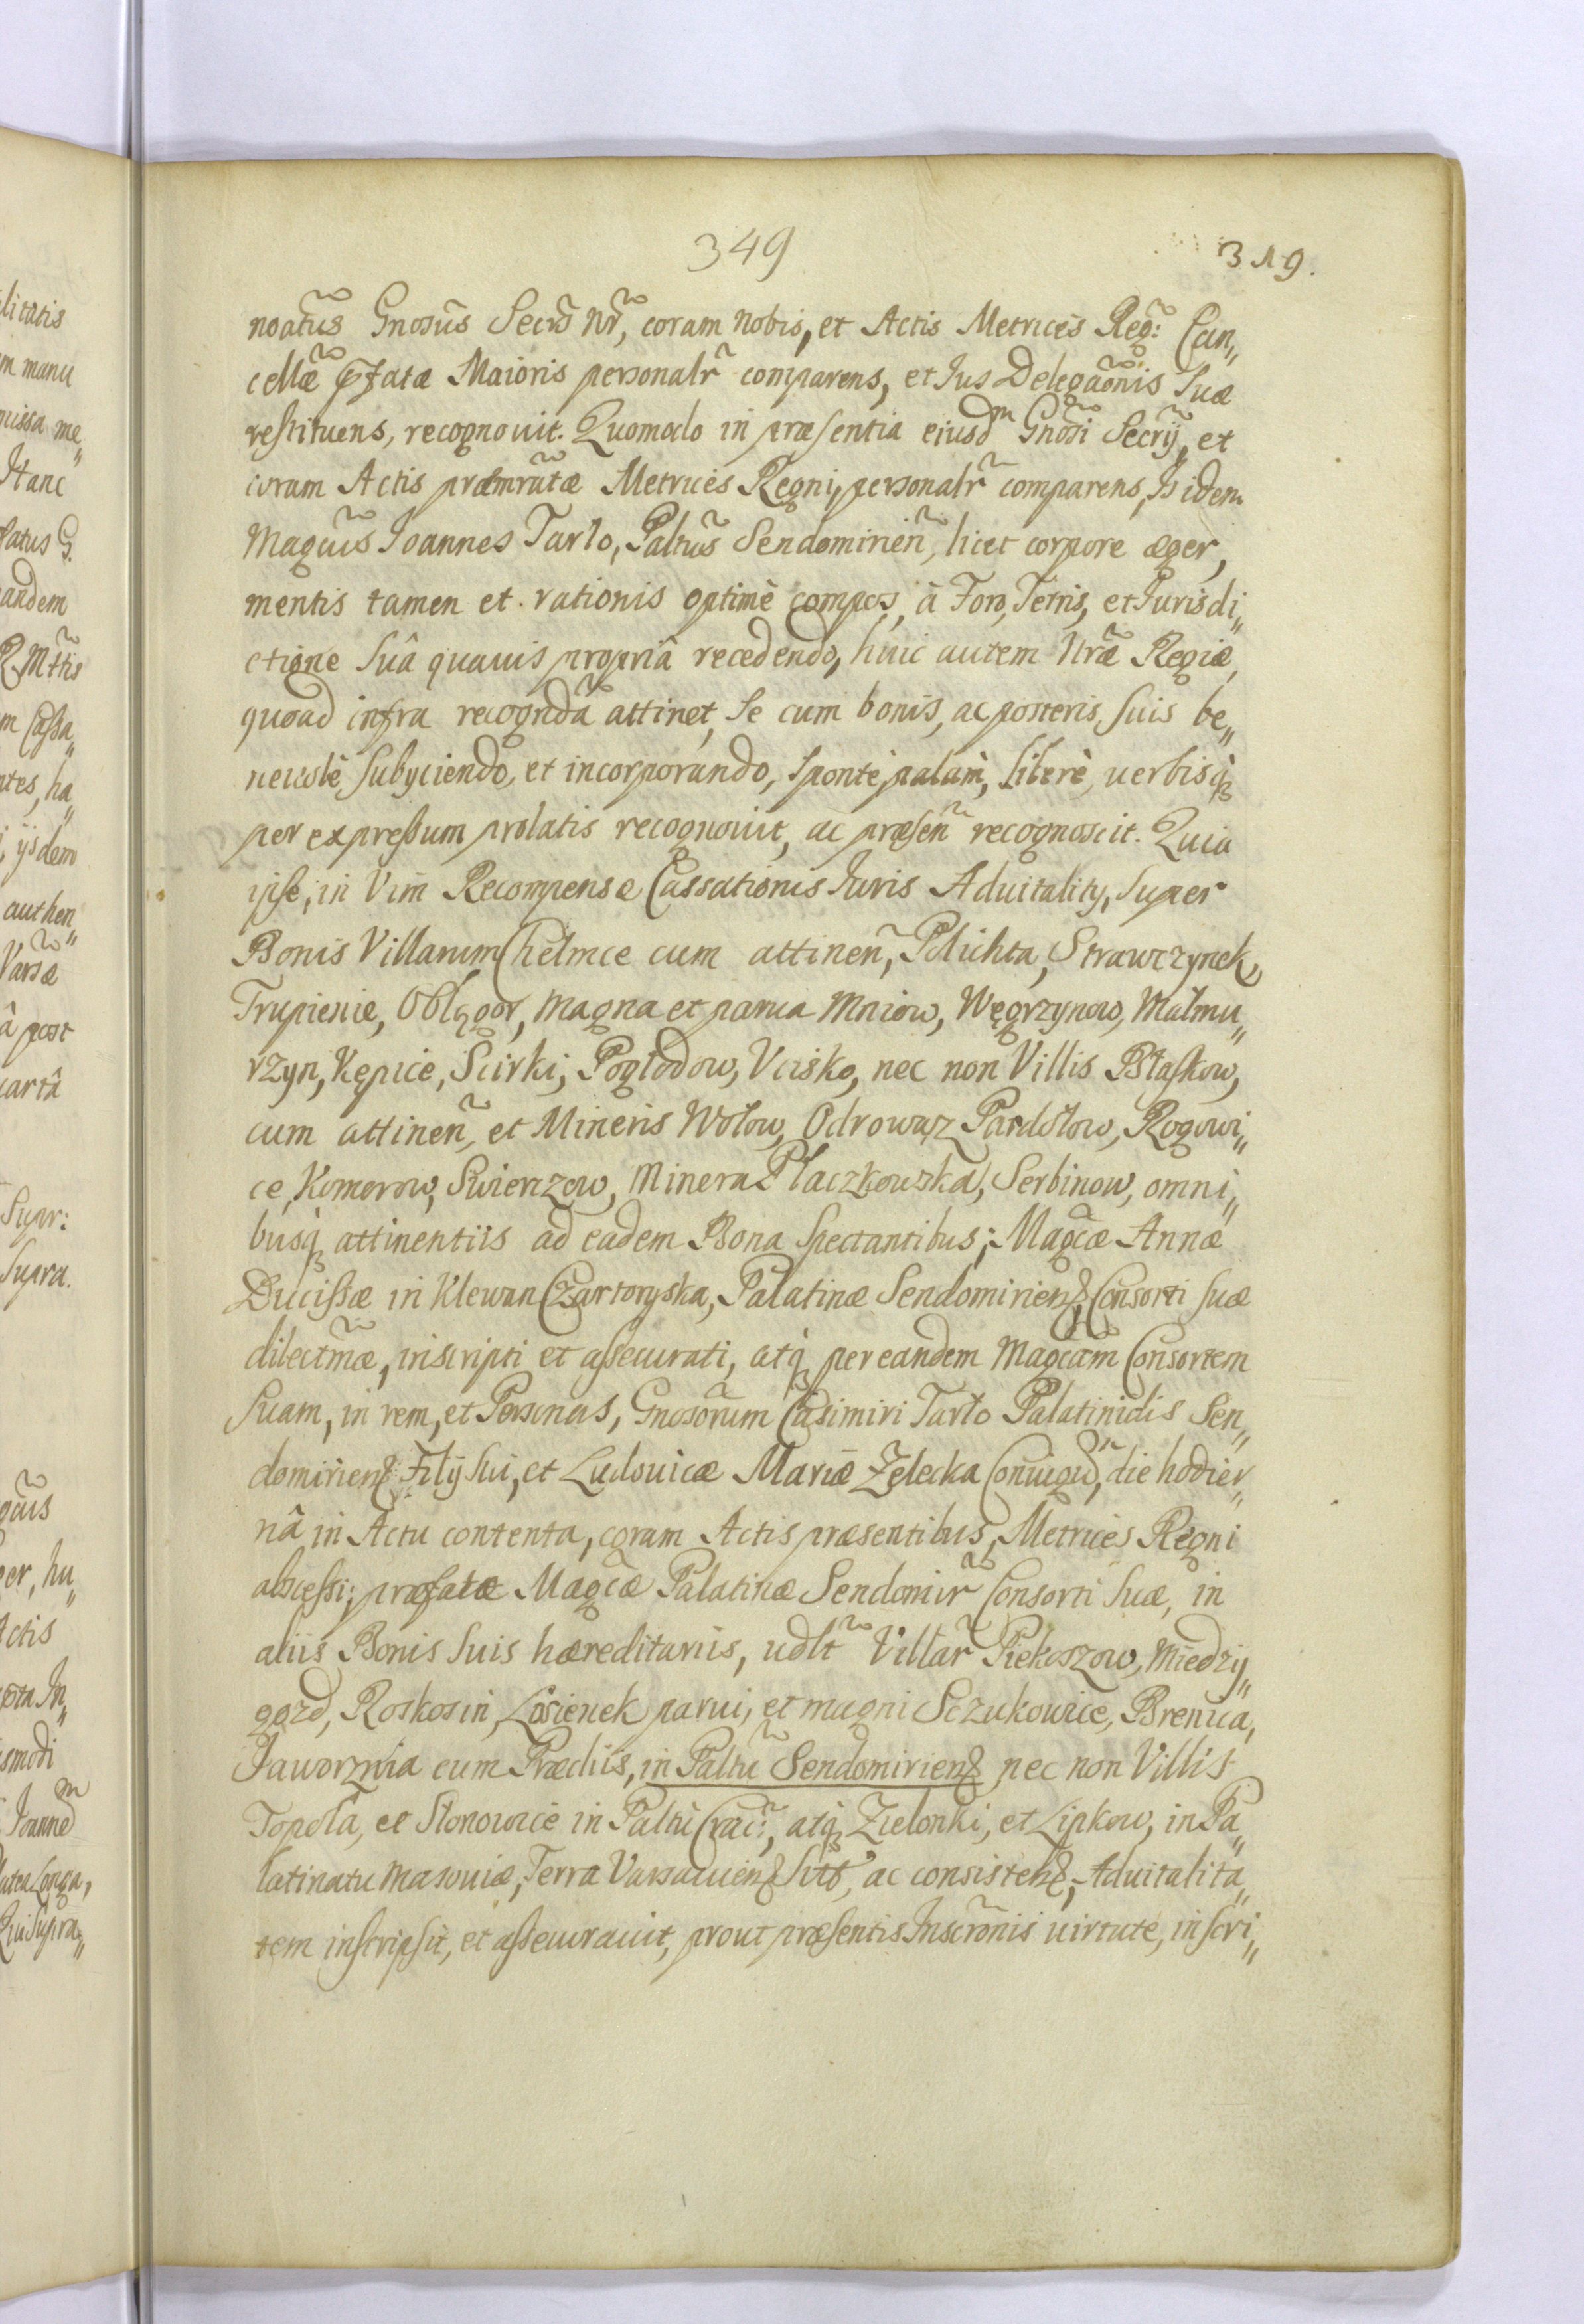 349
319.
noatũs Gnosũs Secrũs Nr̃, coram Nobis, et Actis Metrices Reg̃: Can„
cellæ p̃fatæ Maioris personalr̃ comparens, et Jus Delegãonis Suæ
restituens, recognouit. Quomodo in præsentia eiusdm̃ Gnosi Secrij, et
coram Actis præmrãtæ Metrices Regni, personalr̃ comparens, Is idem
Magcũs Joannes Tarło, Paltnũs Sendomirien̄, licet corpore æger,
mentis tamen et rationis optimè compos, à Foro, Terris, et Jurisdi„
ctione Suâ quauis propriâ recedendo, huic autem Nræ̃ Regiæ,
quoad infra recogndã attinet, Se cum bonis, ac posteris, Suis be„
neuolè, Subijciendo, et incorporando, Spontè, palam, liberè, uerbisq̀
per expressum prolatis recognouit, ac præsen̄ recognoscit. Quia
ipse, in Vim Recompensæ Cassationis Juris Aduitalitij, Super
Bonis Villarum Chełmce cum attinen̄, Polichta, Strawczynek,
Trupienie, Oblęgor, Magna et parua Mniow, Węgrzynow, Małmu„
rzyn, Kępice, Scirki, Pogłodow, Ucisko, nec non Villis Błaszkow,
cum attinen̄, et Mineris Wołow, Odrowąz Pardołow, Rogowi„
ce, Komorow, Swierczow, Minera Płaczkowska, Serbinow, omni„
busq̀ attinentiis ad eadem Bona Spectantibus; Magcæ Annæ
Ducissæ in Klewan Czartoryska, Palatinæ Sendomirien̄, Consorti Suæ
dilectmæ̃, inscripti et assecurati, atq̀ per eandem Magcam Consortem
Suam, in rem, et Personas, Gnosorum Casimiri Tarło Palatinidis Sen„
domirien̄ Filij Sui, et Ludouicæ Mariæ Zelecka Coniugũ, die hodier„
nâ in Actu contenta, coram Actis præsentibus, Metrices Regni
abscessi; præfatæ Magcæ Palatinæ Sendomir̃ Consorti Suæ, in
aliis Bonis Suis hæreditariis, udlt̃ Villar̃ Piekoszow, Miedzy„
gozd, Roskosin, Łosienek parui, et magni Sczukowice, Brenica,
Jaworznia cum Prædiis, in Paltũ Sendomirien̄ nec non Villis
Topola, et Słonowice in Paltu Crac̃:, atq̀ Zielonki, et Lipkow, in Pa„
latinatu Masouiæ, Terra Varsauien̄ Sitt̃, ac consisten̄, Aduitalita„
tem inscripsit, et assecurauit, prout præsentis Inscrõnis uirtute, inscri„